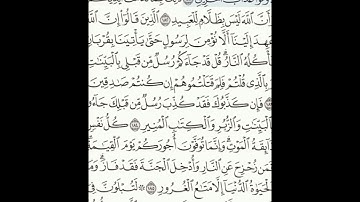 أَنَّ ٱللَّهَ لَيْسَ بِظَلَّامٍ لِّلْعَبِيدِ ۝ ٱلَّذِينَ قَالُوٓا۟ إِنَّ ٱللَّهَ
عَهِدَ إِلَيْنَآ أَلَّا نُؤْمِنَ لِرَسُولٍ حَتَّىٰ يَأْتِيَنَا بِقُرْبَانٍ
تَأْكُلُهُ ٱلنَّارُ ۗ قُلْ قَدْ جَآءَكُمْ رُسُلٌ مِّن قَبْلِى بِٱلْبَيِّنَـٰتِ
وَبِٱلَّذِى قُلْتُمْ فَلِمَ قَتَلْتُمُوهُمْ إِن كُنتُمْ صَـٰدِقِينَ
۝ فَإِن كَذَّبُوكَ فَقَدْ كُذِّبَ رُسُلٌ مِّن قَبْلِكَ جَآءُو
بِٱلْبَيِّنَـٰتِ وَٱلزُّبُرِ وَٱلْكِتَـٰبِ ٱلْمُنِيرِ ۝ كُلُّ نَفْسٍ
ذَآئِقَةُ ٱلْمَوْتِ ۗ وَإِنَّمَا تُوَفَّوْنَ أُجُورَكُمْ يَوْمَ ٱلْقِيَـٰمَةِ ۖ
فَمَن زُحْزِحَ عَنِ ٱلنَّارِ وَأُدْخِلَ ٱلْجَنَّةَ فَقَدْ فَازَ ۗ وَمَا
ٱلْحَيَوٰةُ ٱلدُّنْيَآ إِلَّا مَتَـٰعُ ٱلْغُرُورِ ۝ ۞ لَتُبْلَوُنَّ فِىٓ